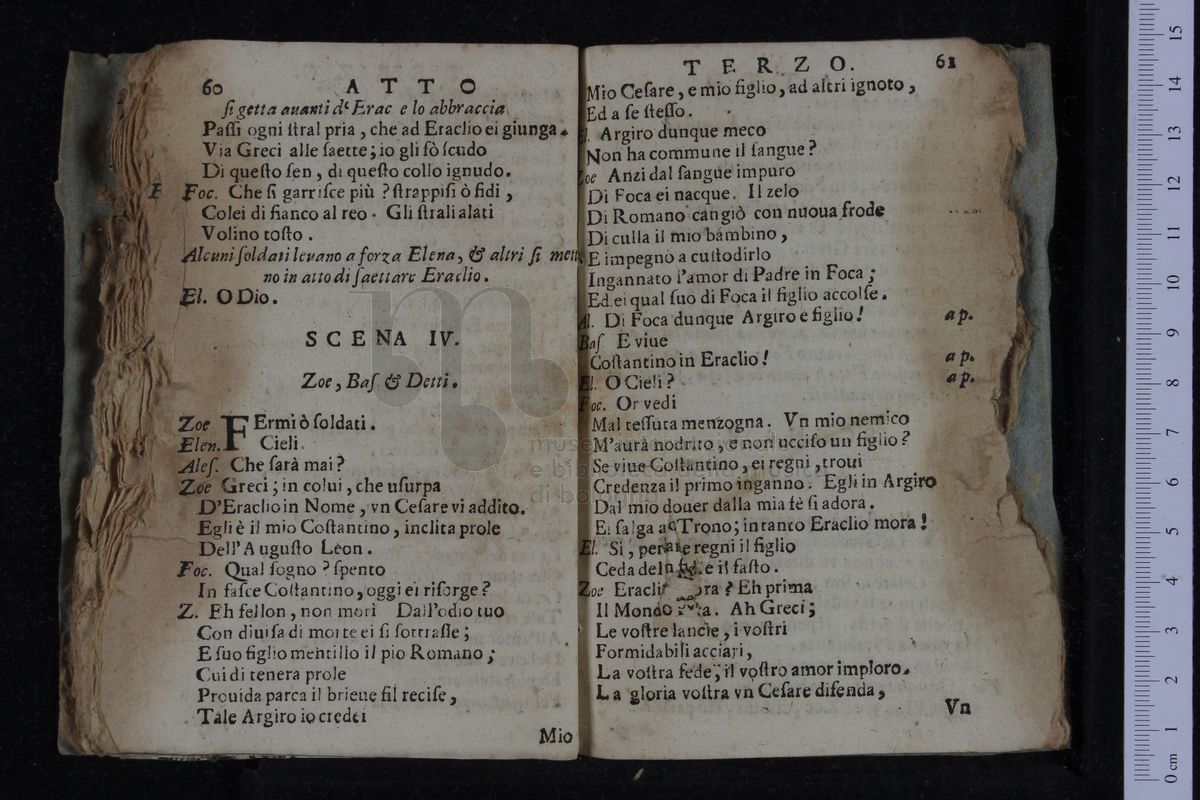 60 ATTO
si getta auanti d' Erac e lo abbraccia.
Passi ogni stral pria, che ad Eraclio ei giunga.
Via Greci alle saette; io gli fò scudo
Di questo sen, di questo collo ignudo.
Foc. Che si garrisce più? strappisi ò fidi,
Colei di fianco al reo. Gli strali alati
Volino tosto.
Alcuni soldati leuano a forza Elena, & altri si mett
no in atto di saettare Eraclio.
El. O Dio.
SCENA IV.
Zoe, Bas. & Detti.
Zoe FErmi ò soldati.
Elen. Cieli.
Ales. Che sarà mai?
Zoe Greci; in colui, che usurpa
D'Eraclio in Nome, vn Cesare vi addito.
Egli è il mio Costantino, inclita prole
Dell'Augusto Leon.
Foc. Qual sogno? spento
In fasce Costantino, oggi ei risorge?
Z. Eh fellon, non morì Dall'odio tuo
Con diuisa di morte ei si sottrasse;
E suo figlio mentillo il pio Romano;
Cui di tenera prole
Prouida parca il brieue fil recise,
Tale Argiro io credei
Mio
TERZO. 61
Mio Cesare, e mio figlio, ad altri ignoto,
Ed a se stesso.
El. Argiro dunque meco
Non ha commune il sangue?
Zoe Anzi dal sangue impuro
Di Foca ei nacque. Il zelo
Di Romano cangiò con nuoua frode
Di culla il mio bambino,
E impegnò a custodirlo
Ingannato l'amor di Padre in Foca;
Ed ei qual suo di Foca il figlio accolse.
Al. Di Foca dunque Argiro e figlio! ap.
Bas E viue
Costantino in Eraclio! ap.
El. O Cieli? ap.
Foc. Or vedi
Mal tessuta menzogna. Vn mio nemico
M'aurà nodrito, e non ucciso un figlio?
Se viue Costantino, ei regni, troui
Credenza il primo inganno. Egli in Argiro
Dal mio douer dalla mia fè si adora.
Ei salga al Trono; in tanto Eraclio mora!
El. Si, regni il figlio
Ceda e il fasto.
Zoe ? Eh prima
Il Mondo Ah Greci;
Le vostre lancie, i vostri
Formidabili acciari,
La vostra fede, il vostro amor imploro.
La gloria vostra vn Cesare difenda,
Vn